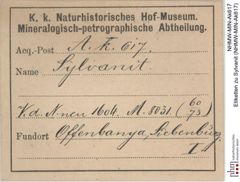 K. k. Naturhistorisches Hof-Museum.
Mineralogisch-petrographische Abtheilung.
Acq.-Post A. k. 617.
Name Sylvanit
K. d. N. neu 1604. M. 8031 (60/73)
Fundort Offenbanya, Siebenbürg.
I.
NHMW-MIN-Ak617
Etiketten zu Sylvanit (NHMW-MIN-Ak617)